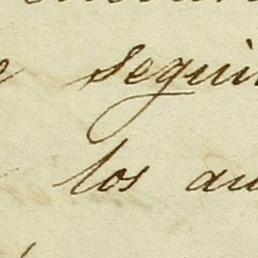 e segui
los au